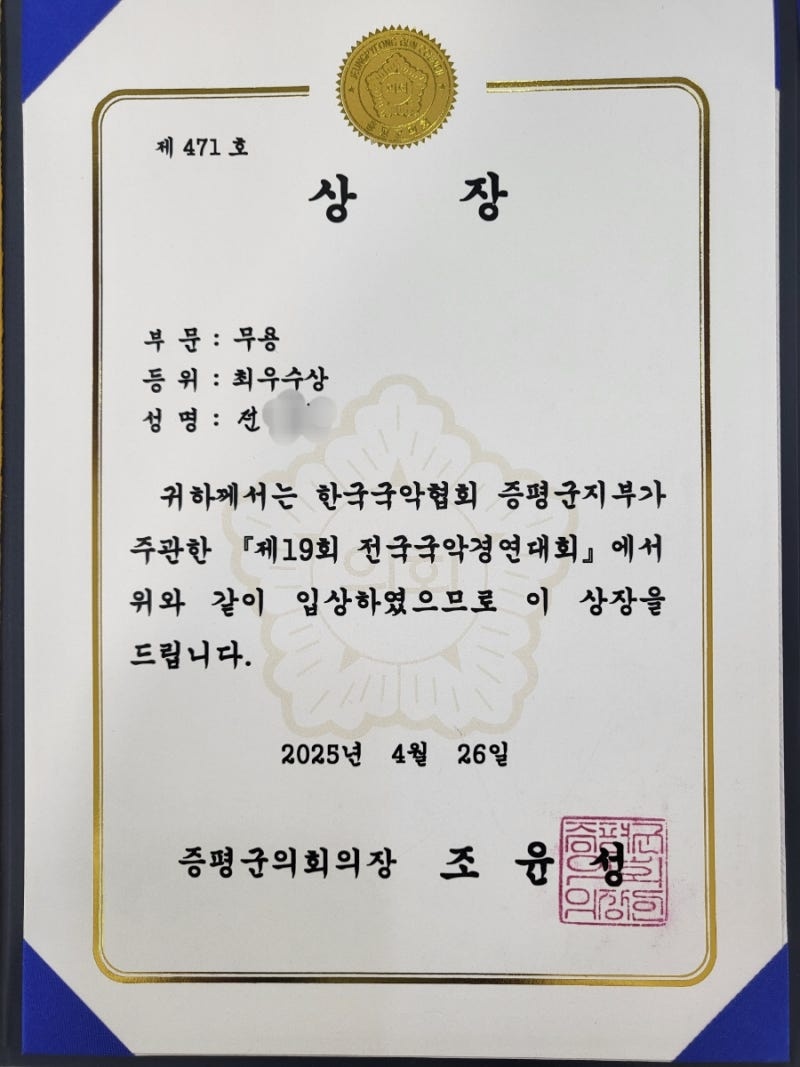 의회
제 471 호
상 장
부 문 : 무용
등 위 : 최우수상
성 명 : 전
귀하께서는 한국국악협회 증평군지부가
주관한 『제19회 전국국악경연대회』에서
위와 같이 입상하였으므로 이 상장을
드립니다.
의회
2025년 4월 26일
증평군의회의장 조 윤 성